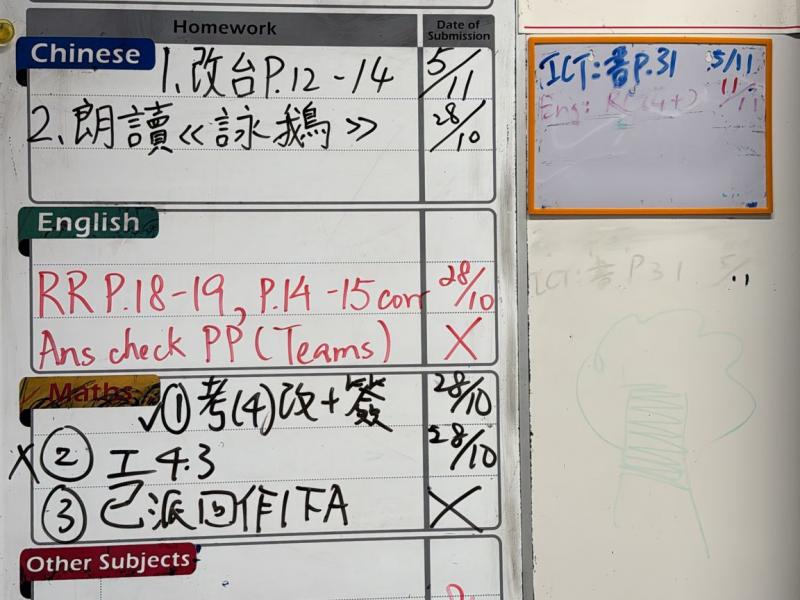 Homework
Date of Submission
Chinese
1. 改台P.12-14 5/11
2. 朗讀《詠鵝》 28/10
English
RR P.18-19, P.14-15 corr 28/10
Ans check PP (Teams) X
Maths
✓① 考(4)改+簽 28/10
X② 工4.3 28/10
③ 已派回作1下A X
Other Subjects
ICT: 書P.31 5/11
Eng: RC (4+) 11/11
ICT: 書 P31 5/11